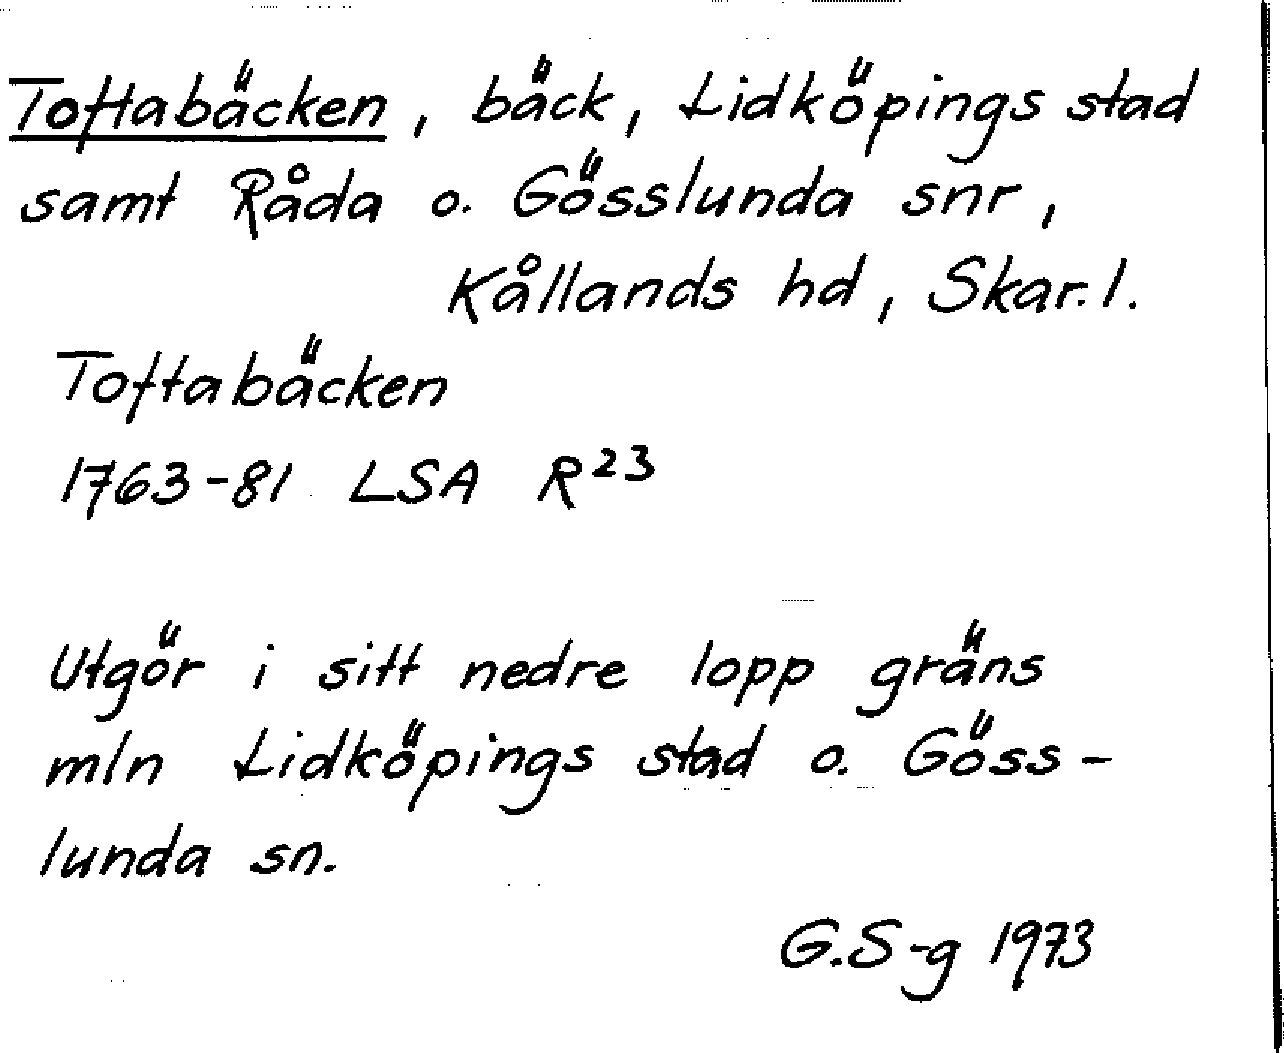 Toftabäcken, bäck, Lidköpings stad
samt Råda o. Gösslunda snr,
Kållands hd, Skar. l.
Toftabäcken
1763-81 LSA R²³
Utgör i sitt nedre lopp gräns
mln Lidköpings stad o. Göss-
lunda sn.
G.S-g 1973